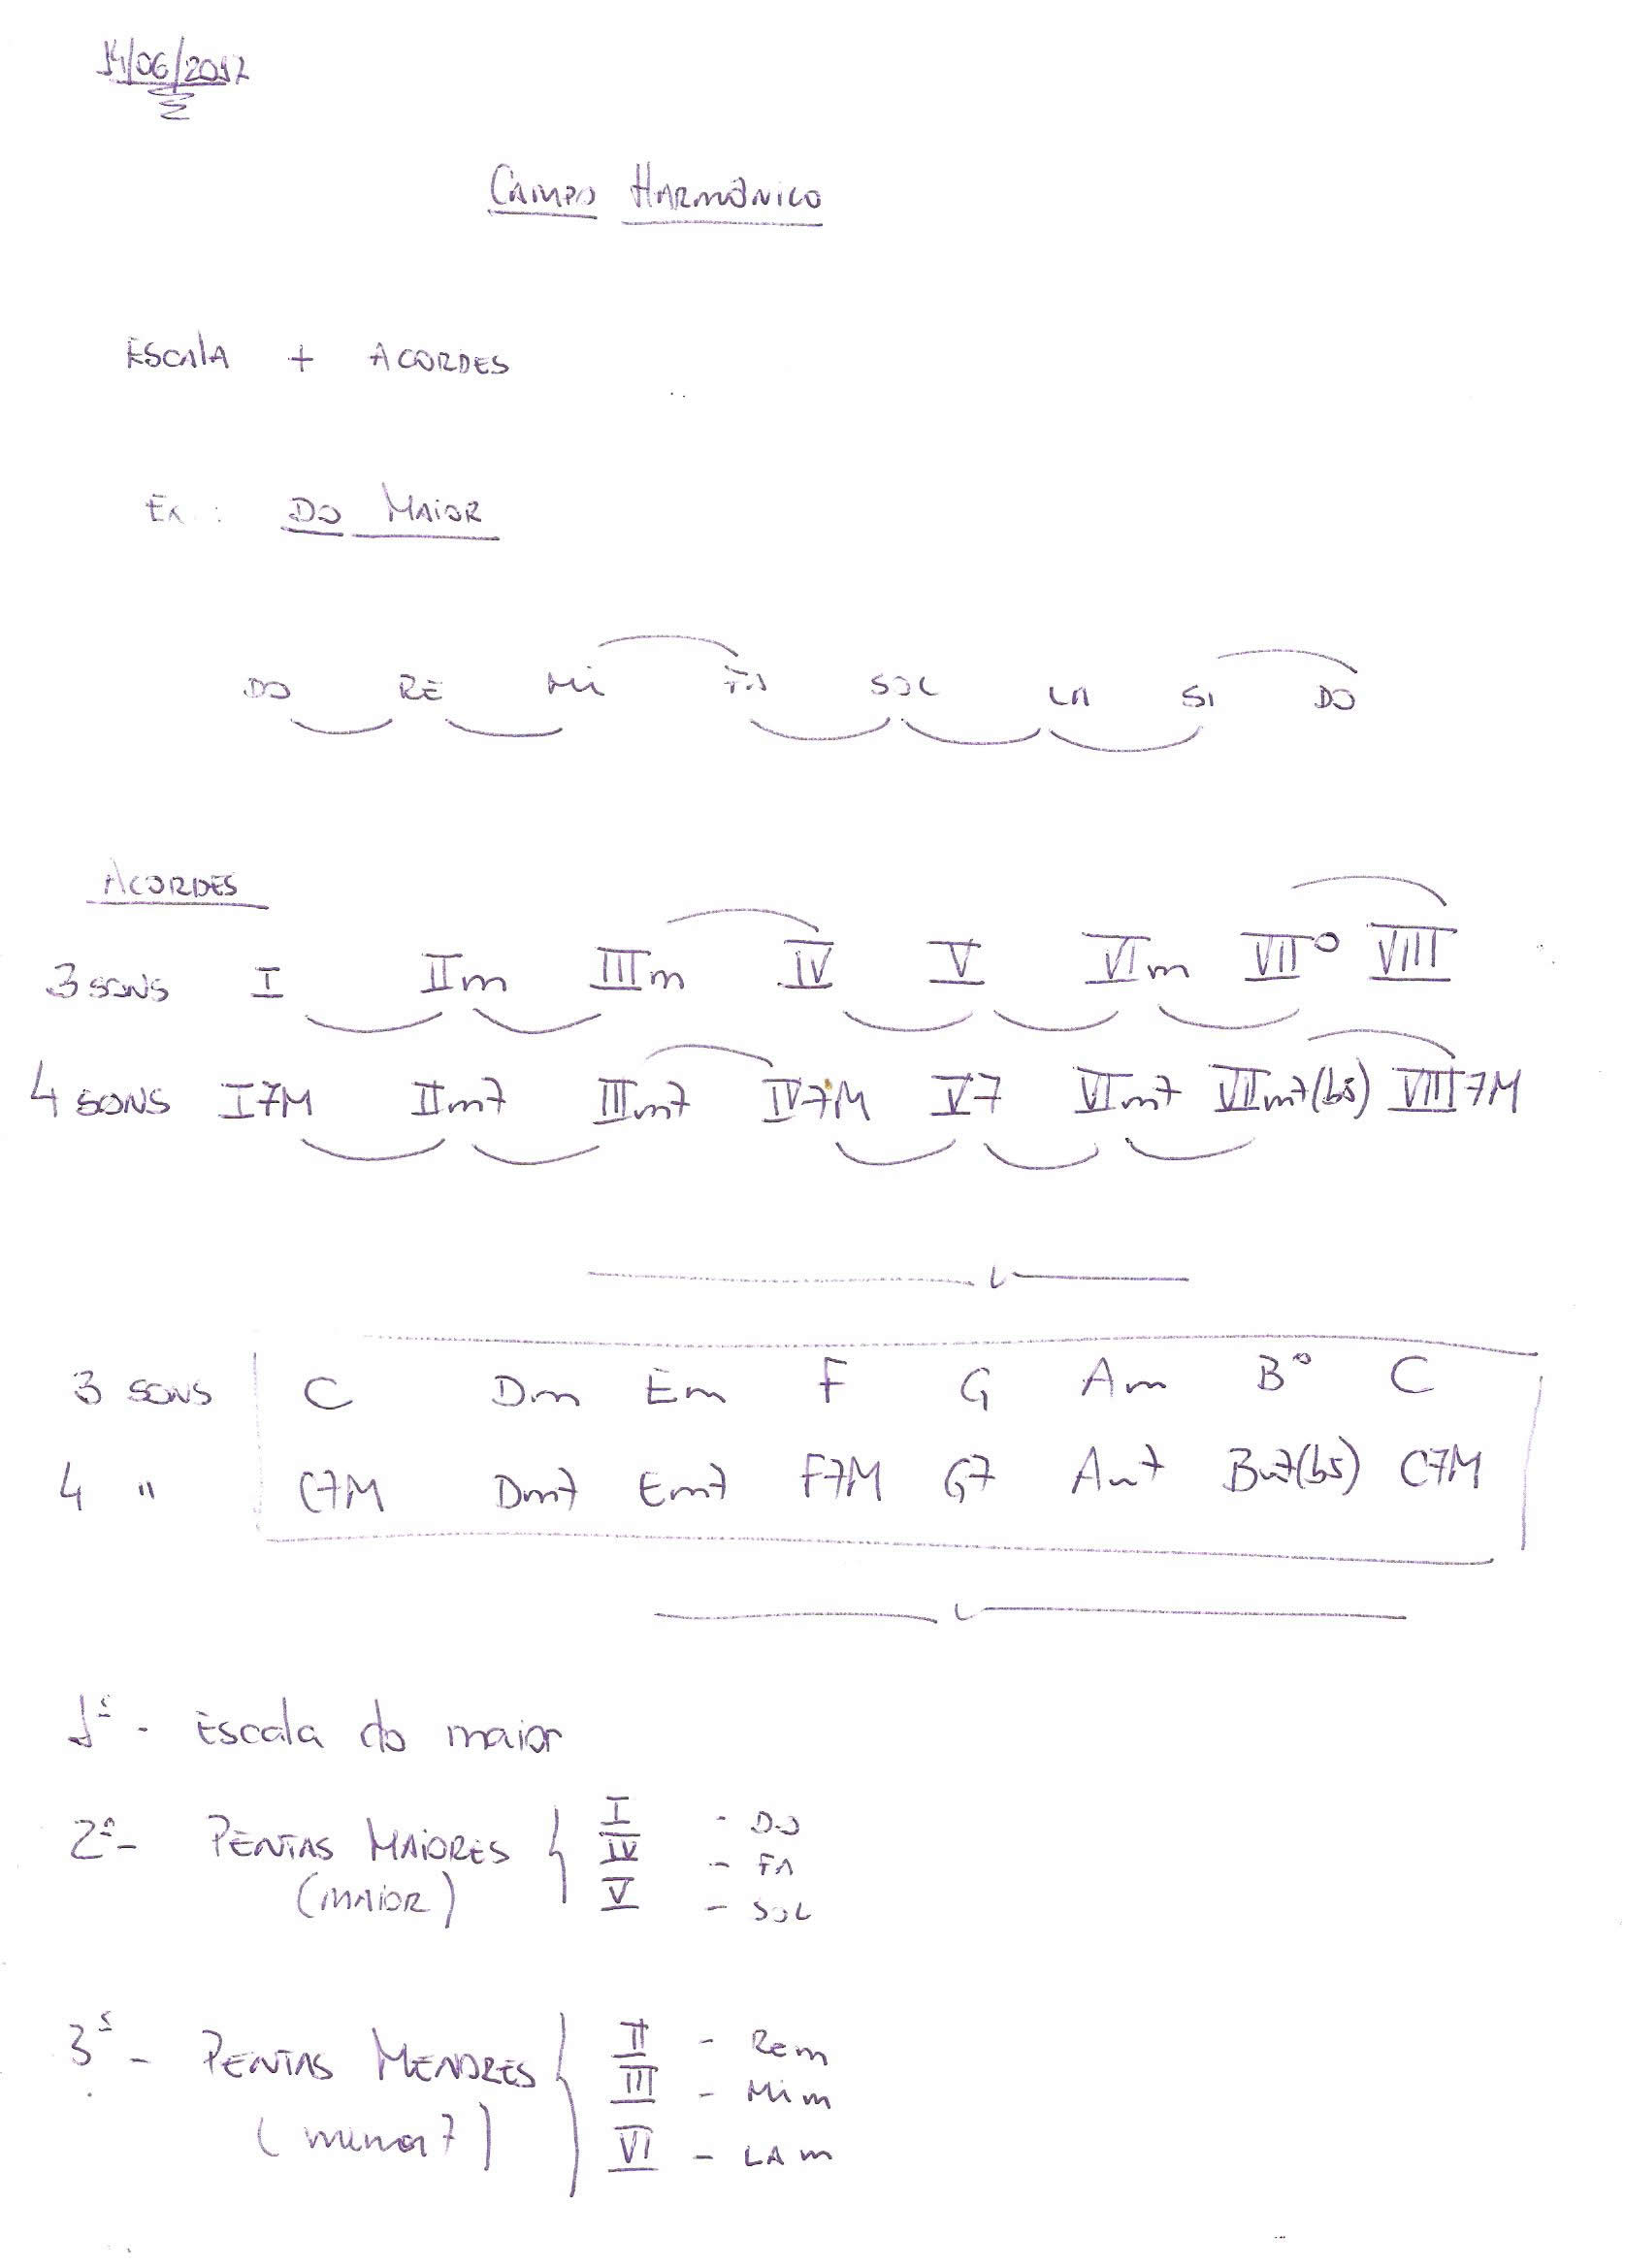 14/06/2017
CAMPO HARMÔNICO
ESCALA + ACORDES
Ex.: DO MAIOR
DO RE Mi FA SOL LA Si DO
ACORDES
3 SONS I IIm IIIm IV V VIm VIIº VIII
4 SONS I7M IIm7 IIIm7 IV7M V7 VIm7 VIIm7(b5) VIII7M
3 SONS C Dm Em F G Am Bº C
4 " C7M Dm7 Em7 F7M G7 Am7 Bm7(b5) C7M
1ª - Escala do maior
2ª - PENTAS MAIORES { I - DO
IV - FA
(MAIOR) V - SOL
3ª - PENTAS MENORES { II - Rem
III - Mim
(menor7) VI - LAm